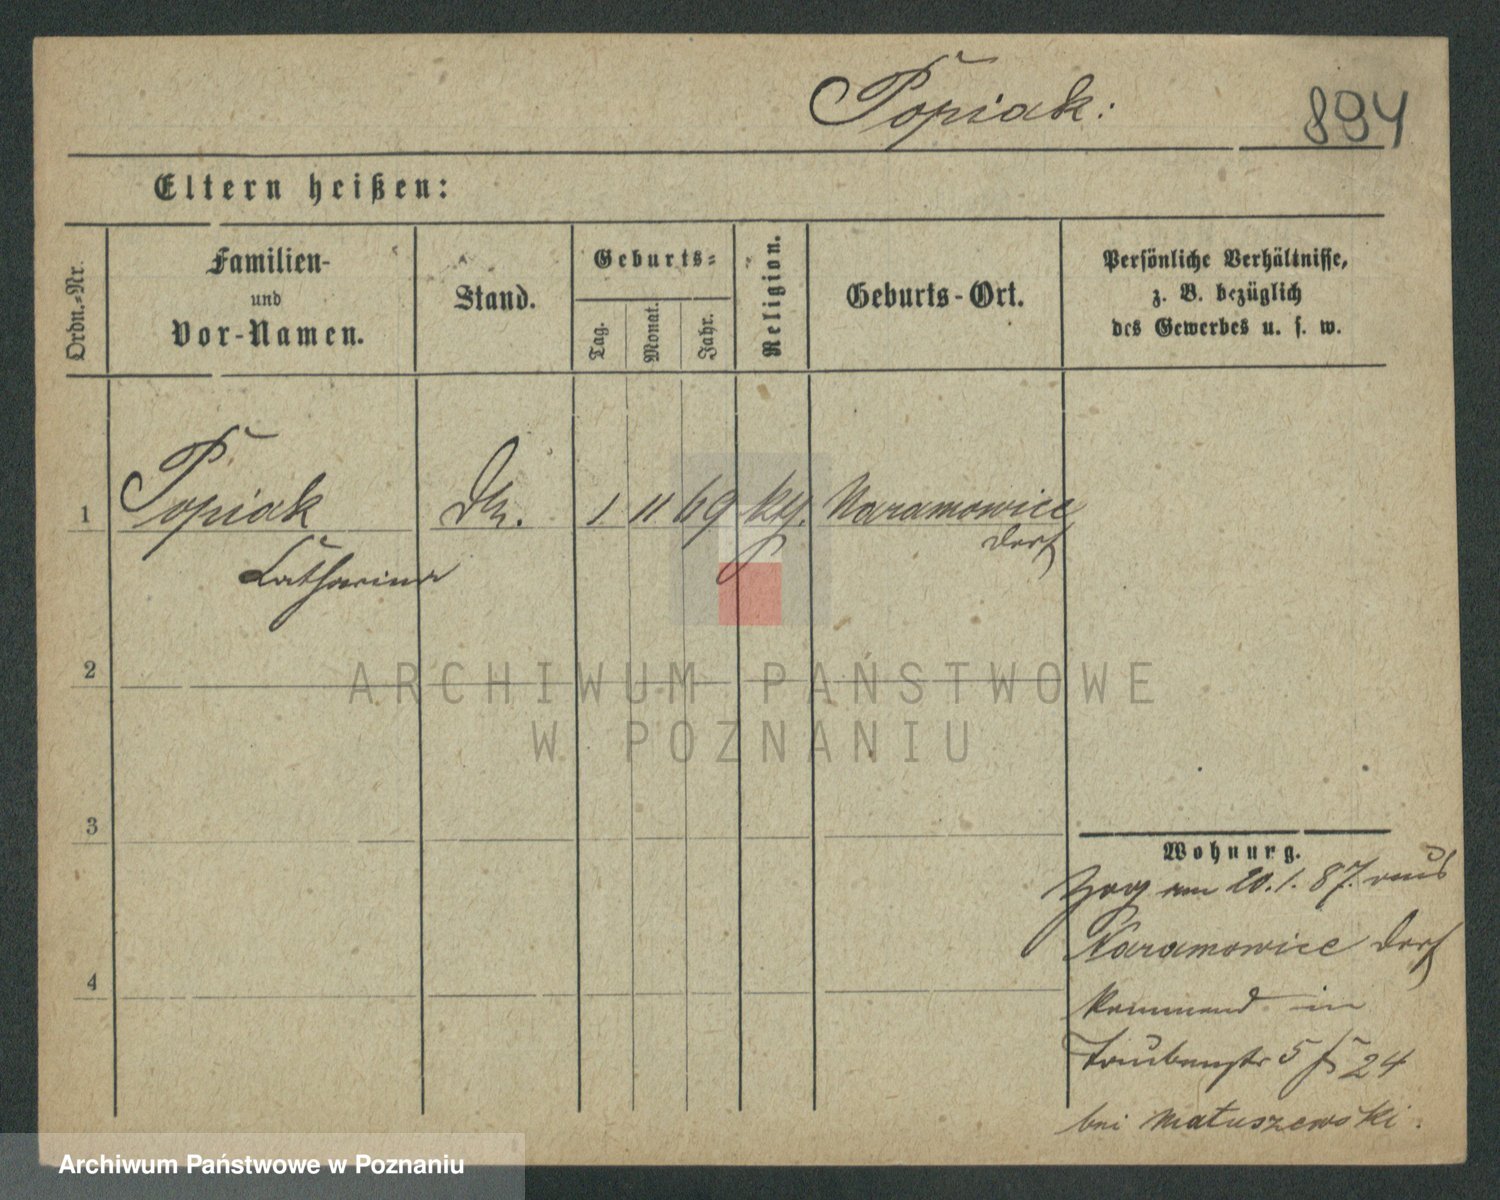 Popiak:
894
Eltern heißen:
Ordn.=Nr.
Familien-
und
Vor-Namen.
Stand.
Geburts=
Tag.
Monat.
Jahr.
Religion.
Geburts-Ort.
Persönliche Verhältnisse,
z. B. bezüglich
des Gewerbes u. s. w.
1
Popiak
1. 11 69
Naramowice
Dorf
Catharina
2
3
4
Wohnung.
Zog am 20.1.87. aus
Naramowice Dorf
kommend in
Taubenstr 5
24
bei Matuszewski.
ARCHIWUM PAŃSTWOWE
W POZNANIU
Archiwum Państwowe w Poznaniu